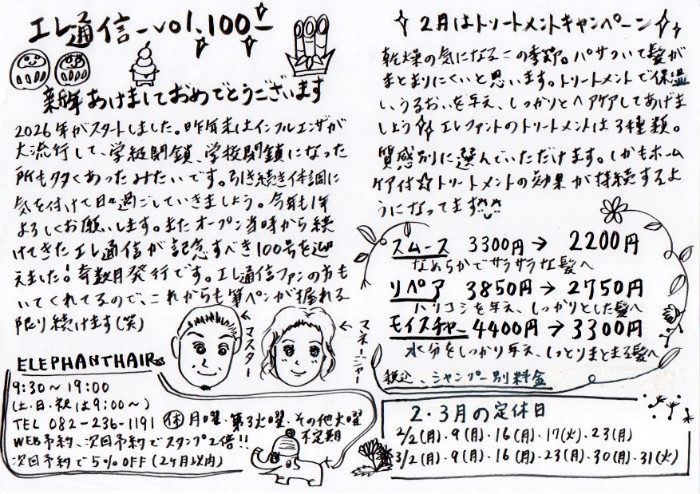 エレ通信ーvol.100ー
新年あけましておめでとうございます
2026年がスタートしました。昨年末はインフルエンザが
大流行して、学級閉鎖、学校閉鎖になった
所も多くあったみたいです。引き続き体調に
気を付けて日々過ごしていきましょう。今年も1年
よろしくお願いします。またオープン当時から続
けてきたエレ通信が記念すべき100号を迎
えました!奇数月発行です。エレ通信ファンの方も
いてくれてるので、これからも筆ペンが握れる
限り続けます(笑)
←マスター
←マネージャー
ELEPHANTHAIR
9:30〜19:00
(土・日・祝は9:00〜)
TEL 082-236-1191
休 月曜、第3火曜、その他火曜
不定期
WEB予約、次回予約でスタンプ2倍!!
次回予約で5%OFF(2ヶ月以内)
2月はトリートメントキャンペーン
乾燥の気になるこの季節。パサついて髪が
まとまりにくいと思います。トリートメントで保湿
し、うるおいを与え、しっかりとヘアケアしてあげま
しょう エレファントのトリートメントは3種類。
質感別に選んでいただけます。しかもホーム
ケア付☆トリートメントの効果が持続するよ
うになってます
スムース 3300円→2200円
なめらかでサラサラな髪へ
リペア 3850円→2750円
ハリコシを与え、しっかりとした髪へ
モイスチャー 4400円→3300円
水分をしっかり与え、しっとりまとまる髪へ
税込、シャンプー別料金
2・3月の定休日
2/2(月)・9(月)・16(月)・17(火)・23(月)
3/2(月)・9(月)・16(月)・23(月)・30(月)・31(火)